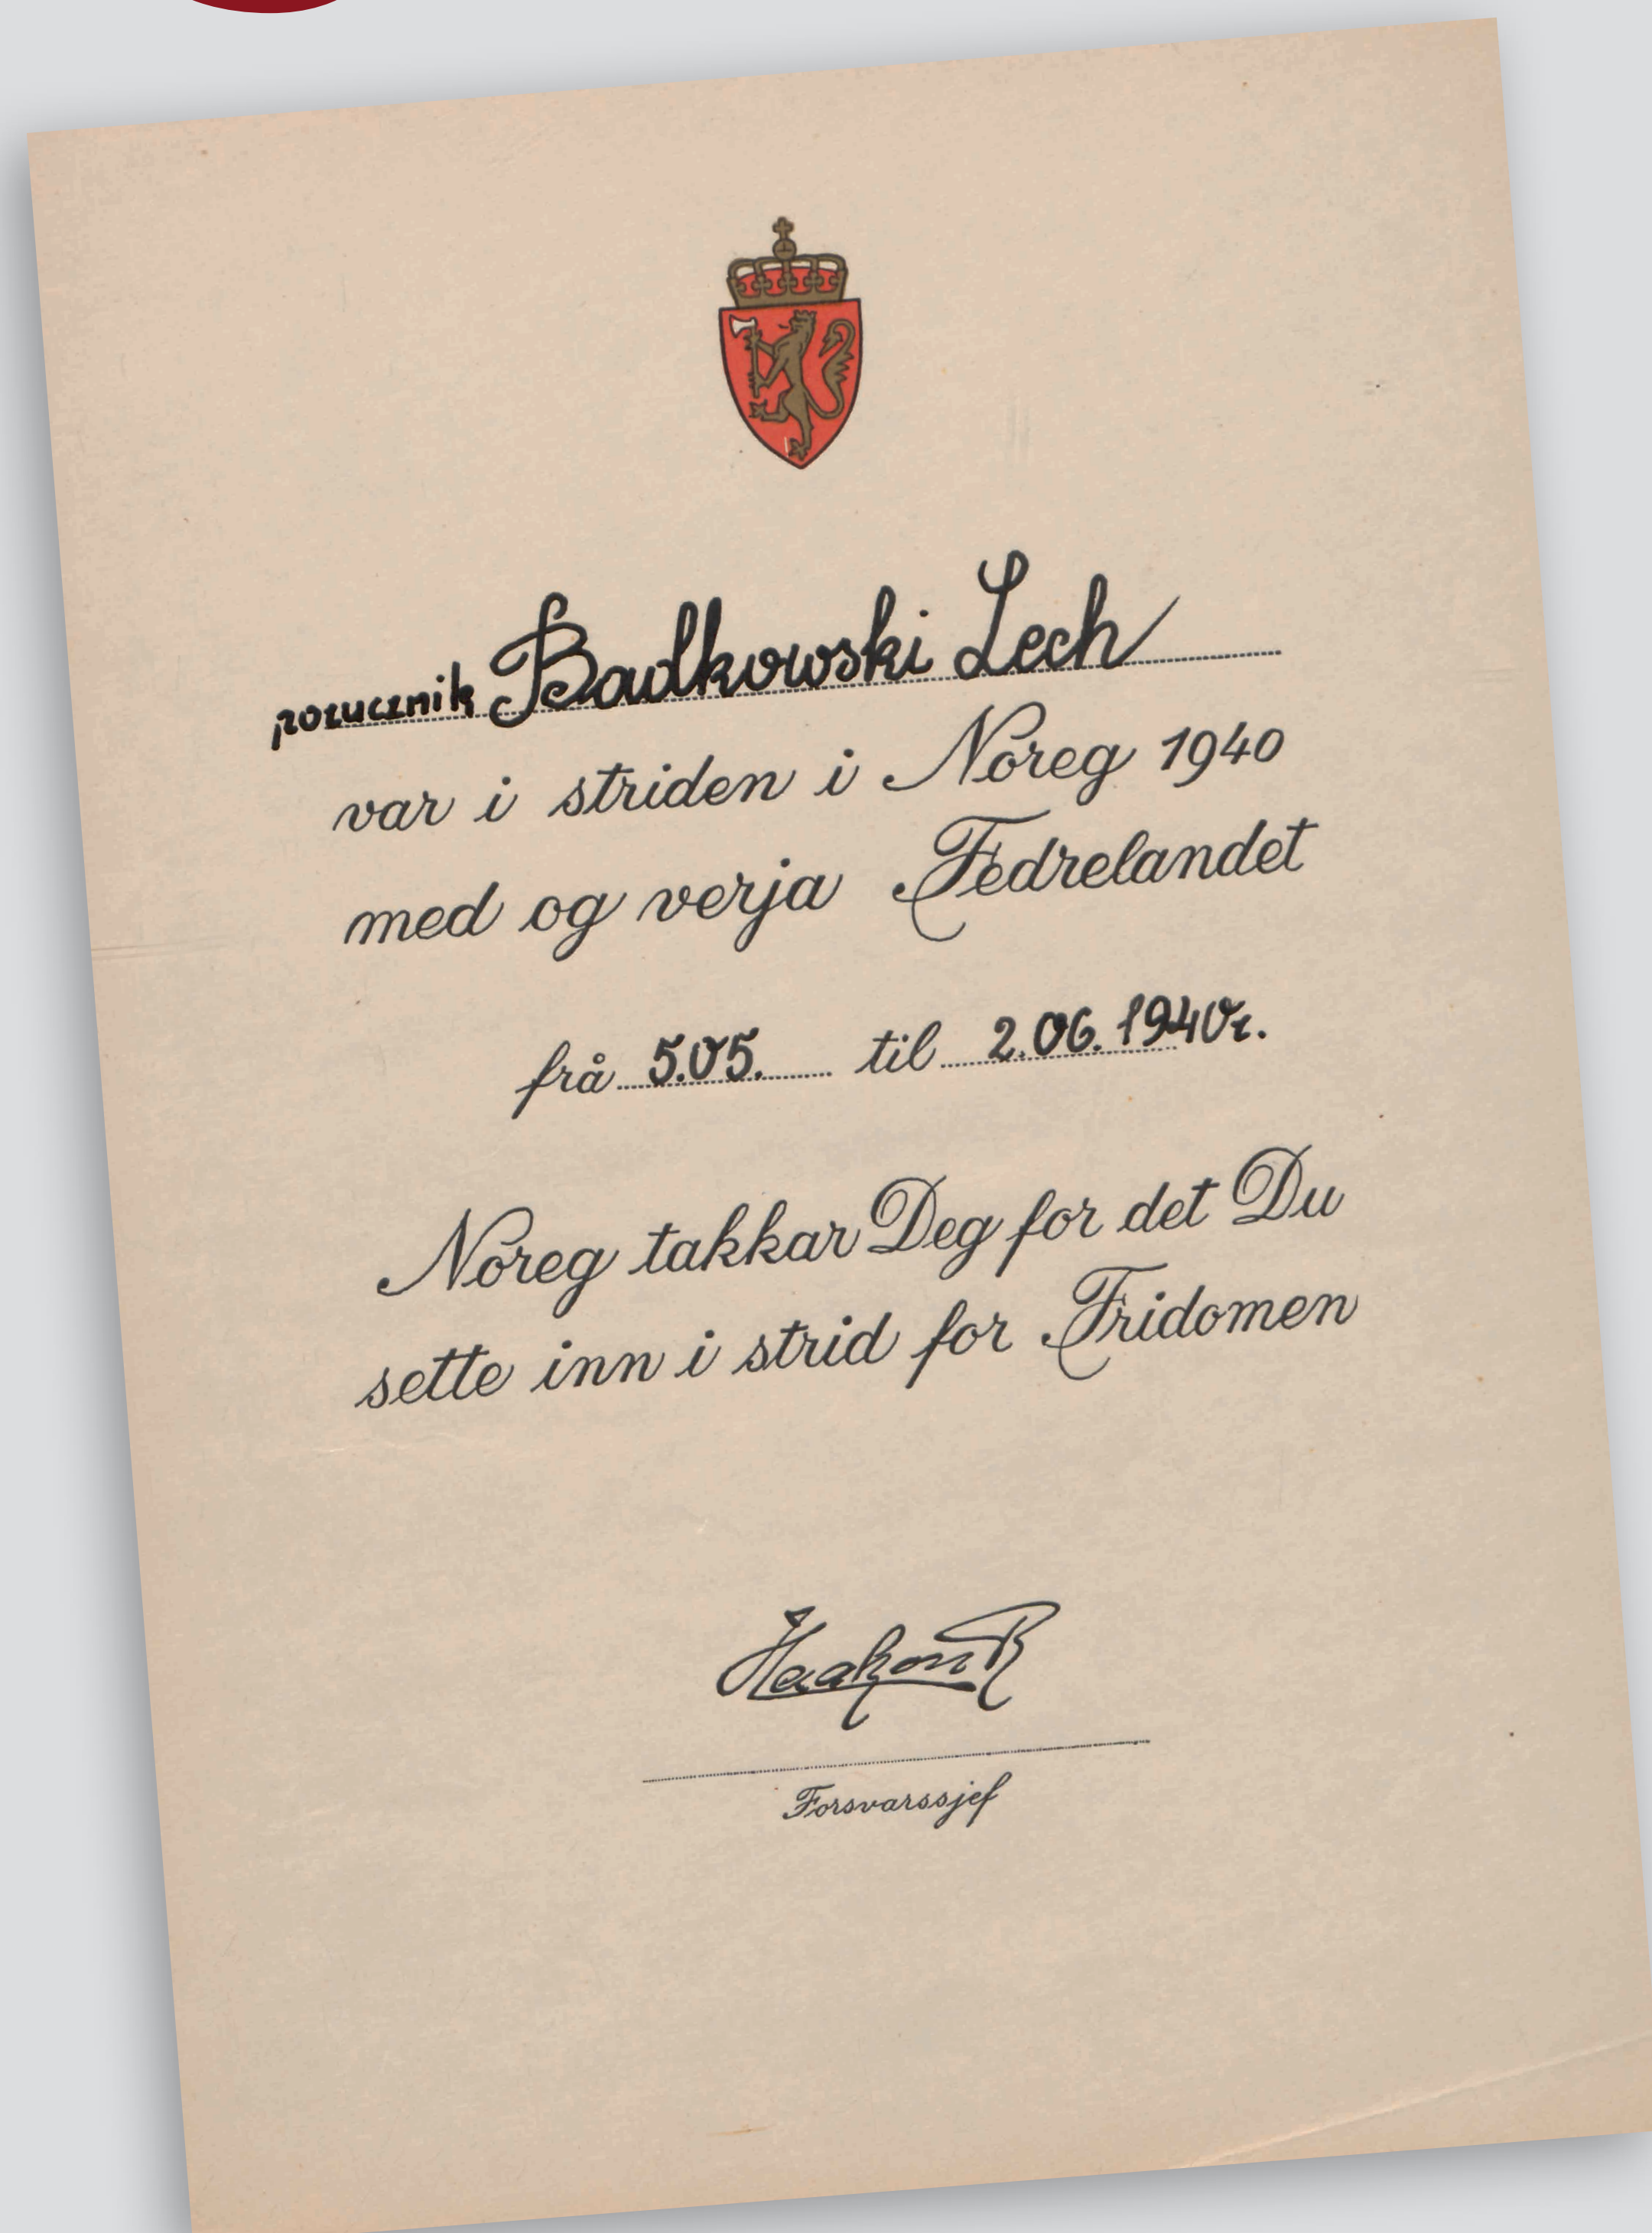 porucznik Badkowski Lech
var i striden i Noreg 1940
med og verja Fedrelandet
frå 5.05. til 2.06.1940r.
Noreg takkar Deg for det Du
sette inn i strid for Fridomen
Haakon R
Forsvarssjef